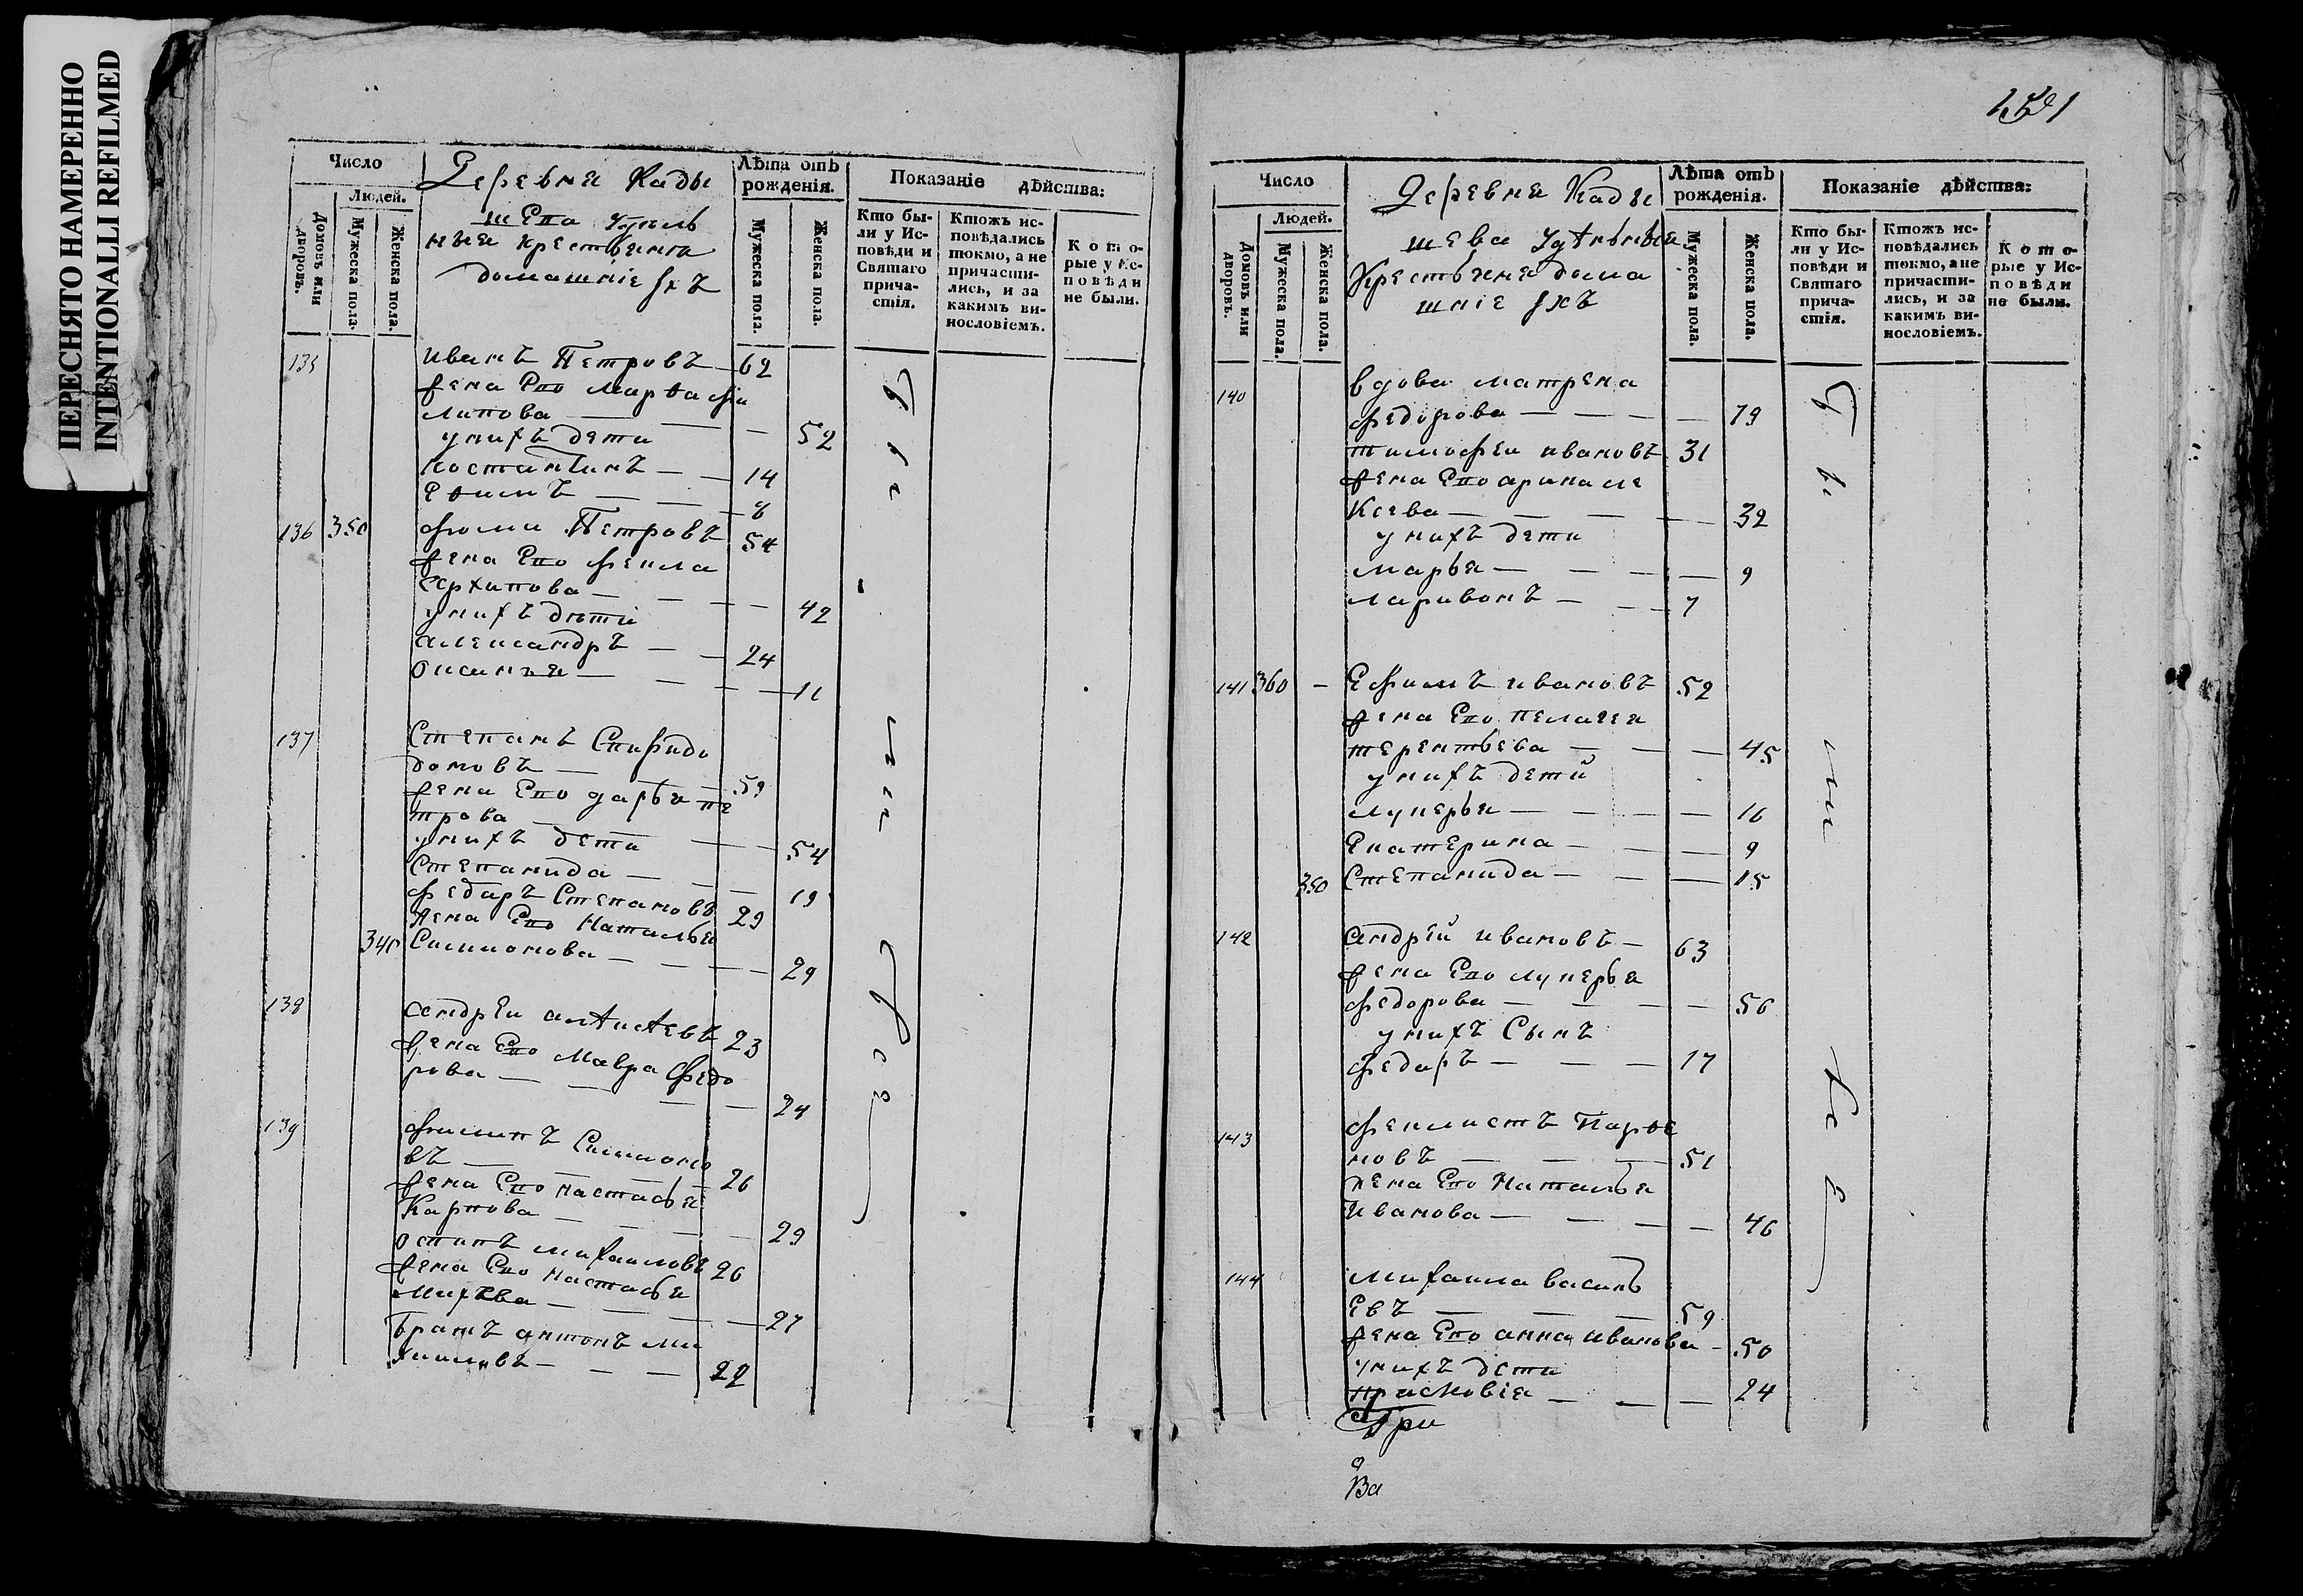 ПЕРЕСНЯТО НАМЕРЕННО
INTENTIONALLI REFILMED
Число
Людей.
Домовъ или дворовъ.
Мужеска пола.
Женска пола.
Деревни Кады
шева удѣль
ныя крестьяня
домашніе ихъ
Лѣта отъ рожденія.
Мужеска пола.
Женска пола.
Показаніе дѣйства:
Кто бы-
ли у Ис-
повѣди и
Святаго
прича-
стія.
Ктожъ ис-
повѣдались
токмо, а не
причасти-
лись, и за
какимъ ви-
нословіемъ.
Кото-
рые у Ис-
повѣди
не были.
135 иванъ Петровъ 62
жена Его Марѳа фи
липова — 52
у нихъ дети
Костантинъ — 14
Еѳимъ — 8
136 350 фома Петровъ 54
жена Его фекла
Сархипова — 42
у нихъ дѣти
александръ — 24
Оксинья — 11
137 Степанъ Спиридо
доновъ — 59
жена Его дарья пе
трова — 54
у нихъ дети
Степанида — 19
федаръ Степановъ 29
жена Его Наталья
340 Симионова — 29
138 андреи алѣксѣевъ 23
жена Его Мавра Федо
рова — 24
139 филипъ Симионо
въ — 26
жена Его настасья
Карпова — 29
осипъ михаиловъ 26
жена Его настасья
— 27
братъ антонъ ми
хиловъ — 22
Число
Людей.
Домовъ или дворовъ.
Мужеска пола.
Женска пола.
Деревни Кады
шева удѣльныя
Крестьяня дома
шніе ихъ
Лѣта отъ рожденія.
Мужеска пола.
Женска пола.
Показаніе дѣйства:
Кто бы-
ли у Ис-
повѣди и
Святаго
прича-
стія.
Ктожъ ис-
повѣдались
токмо, а не
причасти-
лись, и за
какимъ ви-
нословіемъ.
Кото-
рые у Ис-
повѣди
не были.
140 вдова матрена
федорова — 79
тимофеи ивановъ 31
жена Его арина але
Ксева — 32
у нихъ дети
марья — 9
ларивонъ — 7
141 360 — Ефимъ ивановъ 52
жена Его пелагея
терентьева — 45
у нихъ детй
лукерья — 16
Екатерина — 9
350 Степанида — 15
142 андрей ивановъ — 63
жена Его лукерья
федорова — 56
у нихъ Сынъ
федаръ — 17
143 феклистъ Парфе
новъ — 51
жена Его Наталья
Иванова — 46
144 михаила василь
Евъ — 59
жена Его анна иванова — 50
у нихъ дети
прасковія — 24
Гри
Ва